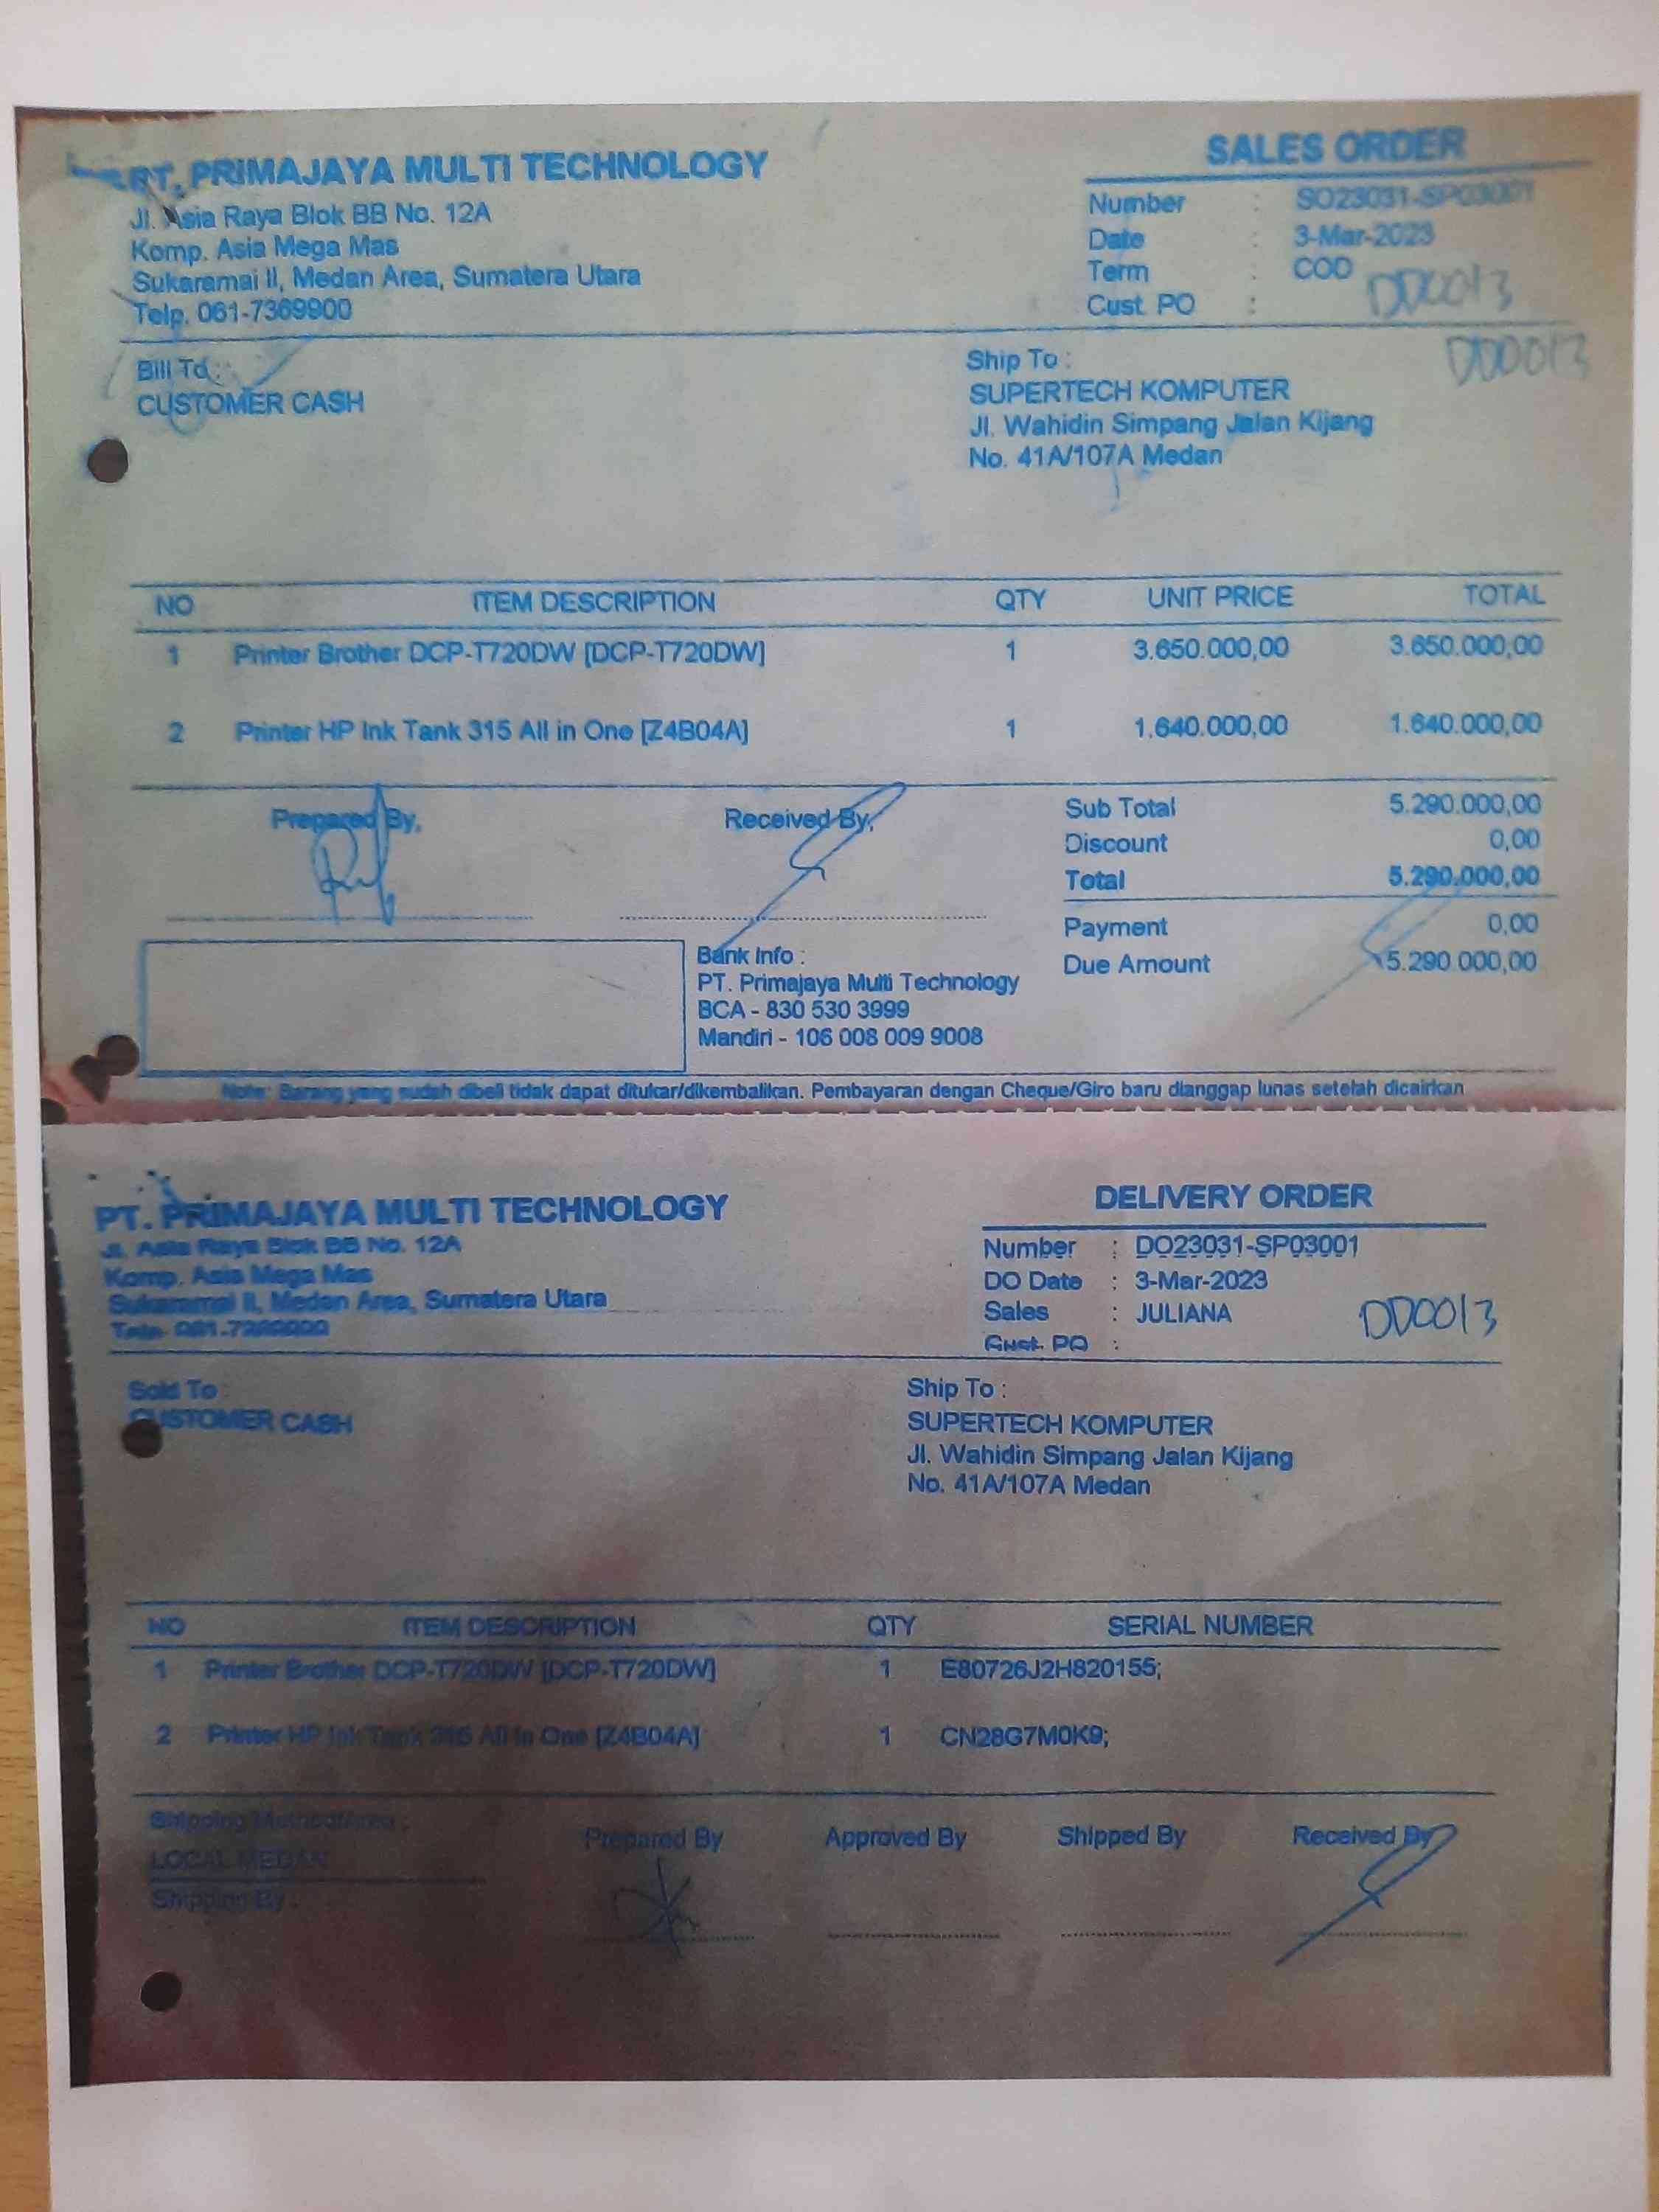 PT. PRIMAJAYA MULTI TECHNOLOGY
Jl. Asia Raya Blok BB No. 12A
Komp. Asia Mega Mas
Sukaramai II, Medan Area, Sumatera Utara
Telp. 061-7369900
SALES ORDER
Number : SO23031-SP03001
Date : 3-Mar-2023
Term : COD
Cust. PO :
DD0013
DD0013
Bill To :
CUSTOMER CASH
Ship To :
SUPERTECH KOMPUTER
Jl. Wahidin Simpang Jalan Kijang
No. 41A/107A Medan
NO ITEM DESCRIPTION QTY UNIT PRICE TOTAL
1 Printer Brother DCP-T720DW [DCP-T720DW] 1 3.650.000,00 3.650.000,00
2 Printer HP Ink Tank 315 All in One [Z4B04A] 1 1.640.000,00 1.640.000,00
Prepared By,
Received By,
Sub Total 5.290.000,00
Discount 0,00
Total 5.290.000,00
Payment 0,00
Due Amount 5.290.000,00
Bank Info :
PT. Primajaya Multi Technology
BCA - 830 530 3999
Mandiri - 106 008 009 9008
Note: Barang yang sudah dibeli tidak dapat ditukar/dikembalikan. Pembayaran dengan Cheque/Giro baru dianggap lunas setelah dicairkan
PT. PRIMAJAYA MULTI TECHNOLOGY
Jl. Asia Raya Blok BB No. 12A
Komp. Asia Mega Mas
Sukaramai II, Medan Area, Sumatera Utara
Telp. 061-7369900
DELIVERY ORDER
Number : DO23031-SP03001
DO Date : 3-Mar-2023
Sales : JULIANA
Cust. PO :
DD0013
Sold To :
CUSTOMER CASH
Ship To :
SUPERTECH KOMPUTER
Jl. Wahidin Simpang Jalan Kijang
No. 41A/107A Medan
NO ITEM DESCRIPTION QTY SERIAL NUMBER
1 Printer Brother DCP-T720DW [DCP-T720DW] 1 E80726J2H820155;
2 Printer HP Ink Tank 315 All in One [Z4B04A] 1 CN28G7M0K9;
Shipping
LOCAL MEDAN
Shipping By :
Prepared By
Approved By
Shipped By
Received By